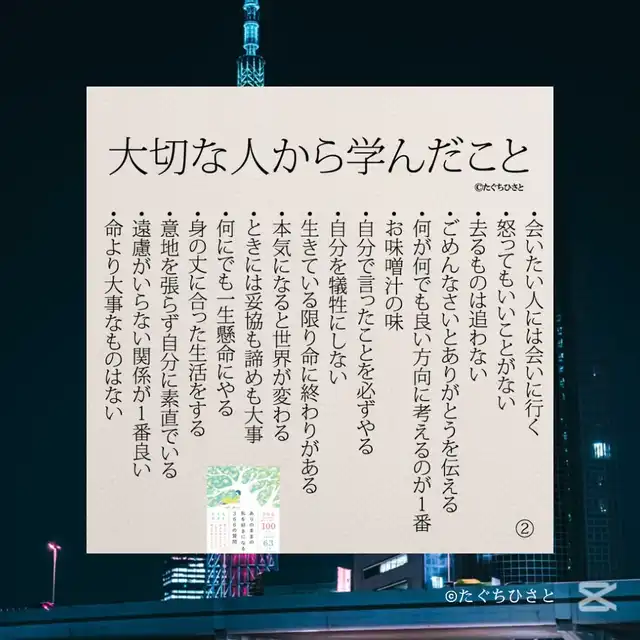 大切な人から学んだこと
©たぐちひさと
・会いたい人には会いに行く
・怒ってもいいことがない
・去るものは追わない
・ごめんなさいとありがとうを伝える
・何が何でも良い方向に考えるのが1番
・お味噌汁の味
・自分で言ったことを必ずやる
・自分を犠牲にしない
・生きている限り命に終わりがある
・本気になると世界が変わる
・ときには妥協も諦めも大事
・何にでも一生懸命にやる
・身の丈に合った生活をする
・意地を張らず自分に素直でいる
・遠慮がいらない関係が1番良い
・命より大事なものはない
②
ありのままの
私を好きになる
366の質問
100
63
©たぐちひさと